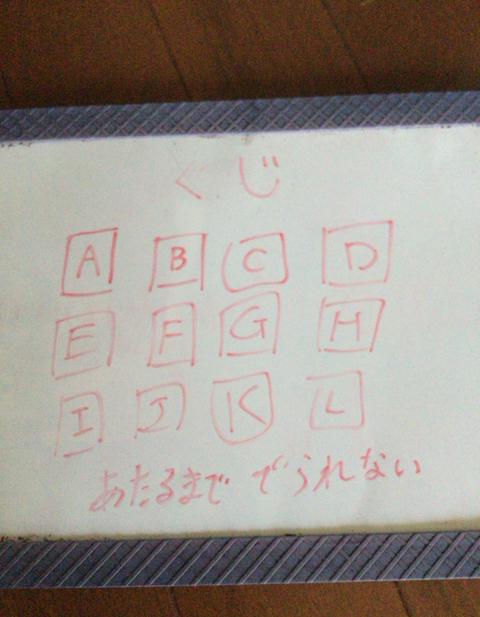 くじ
A B C D
E F G H
I J K L
あたるまで でられない